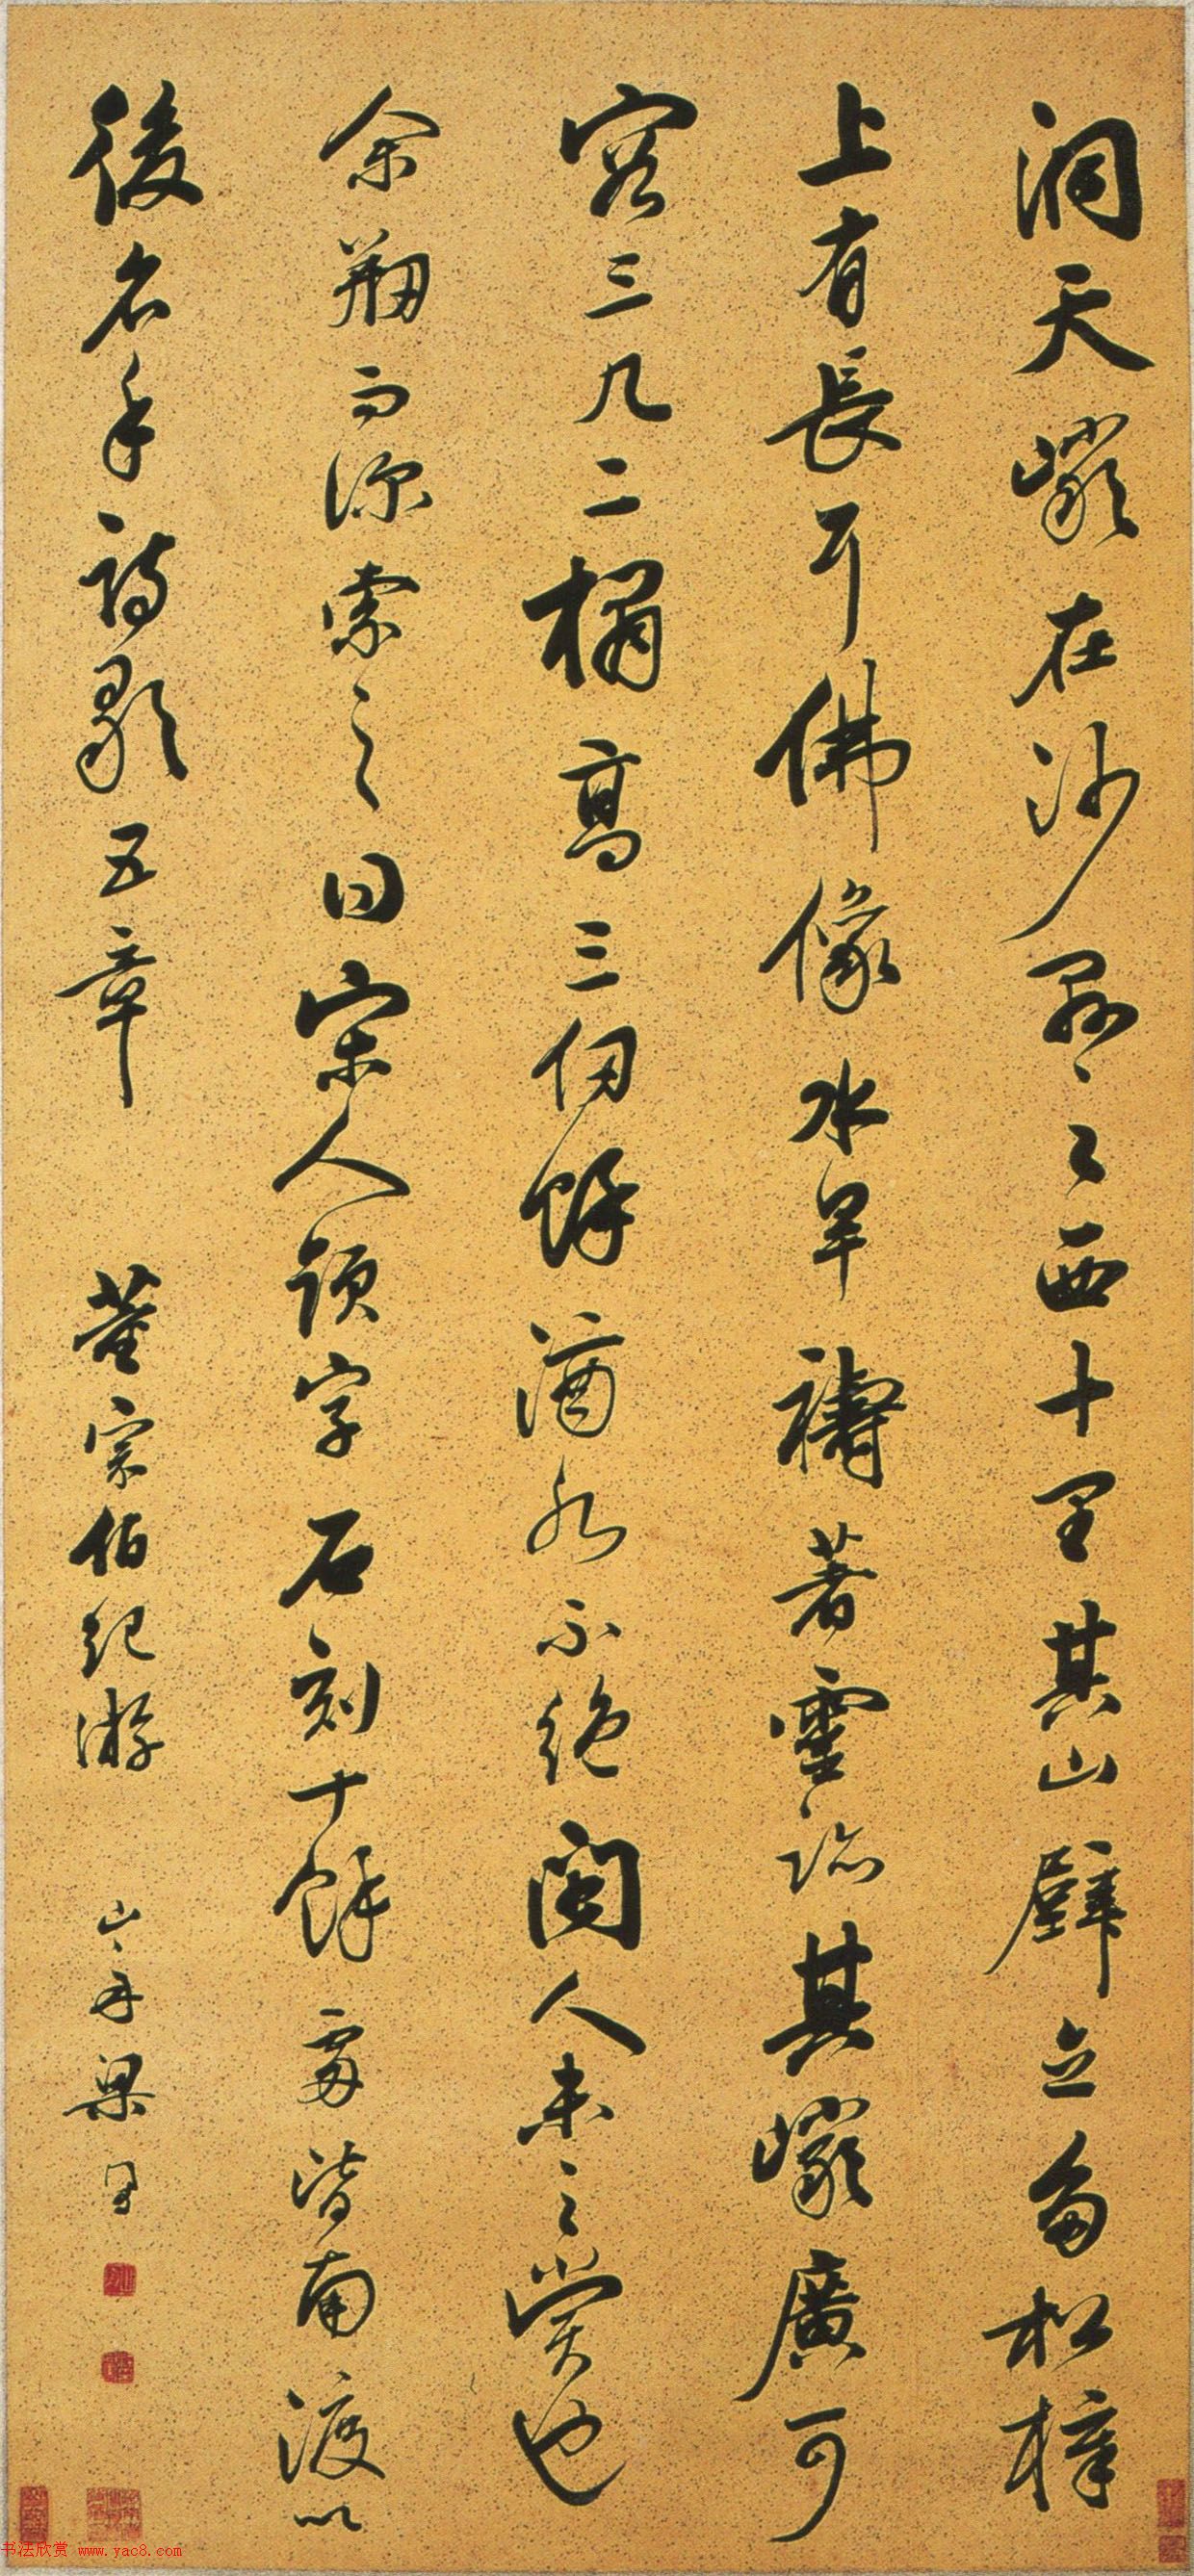 洞天巖在沙縣之西十里其山壁立多松樟
上有長耳佛像水旱禱著靈跡其巖廣可
容三几二榻高三仞餘滴水不絕閩人未之賞也
余搠而深索之曰宋人題字石刻十餘處皆南渡以
後名手詩歌五章 董宗伯紀游 山舟梁同書
书法欣赏 www.yac8.com